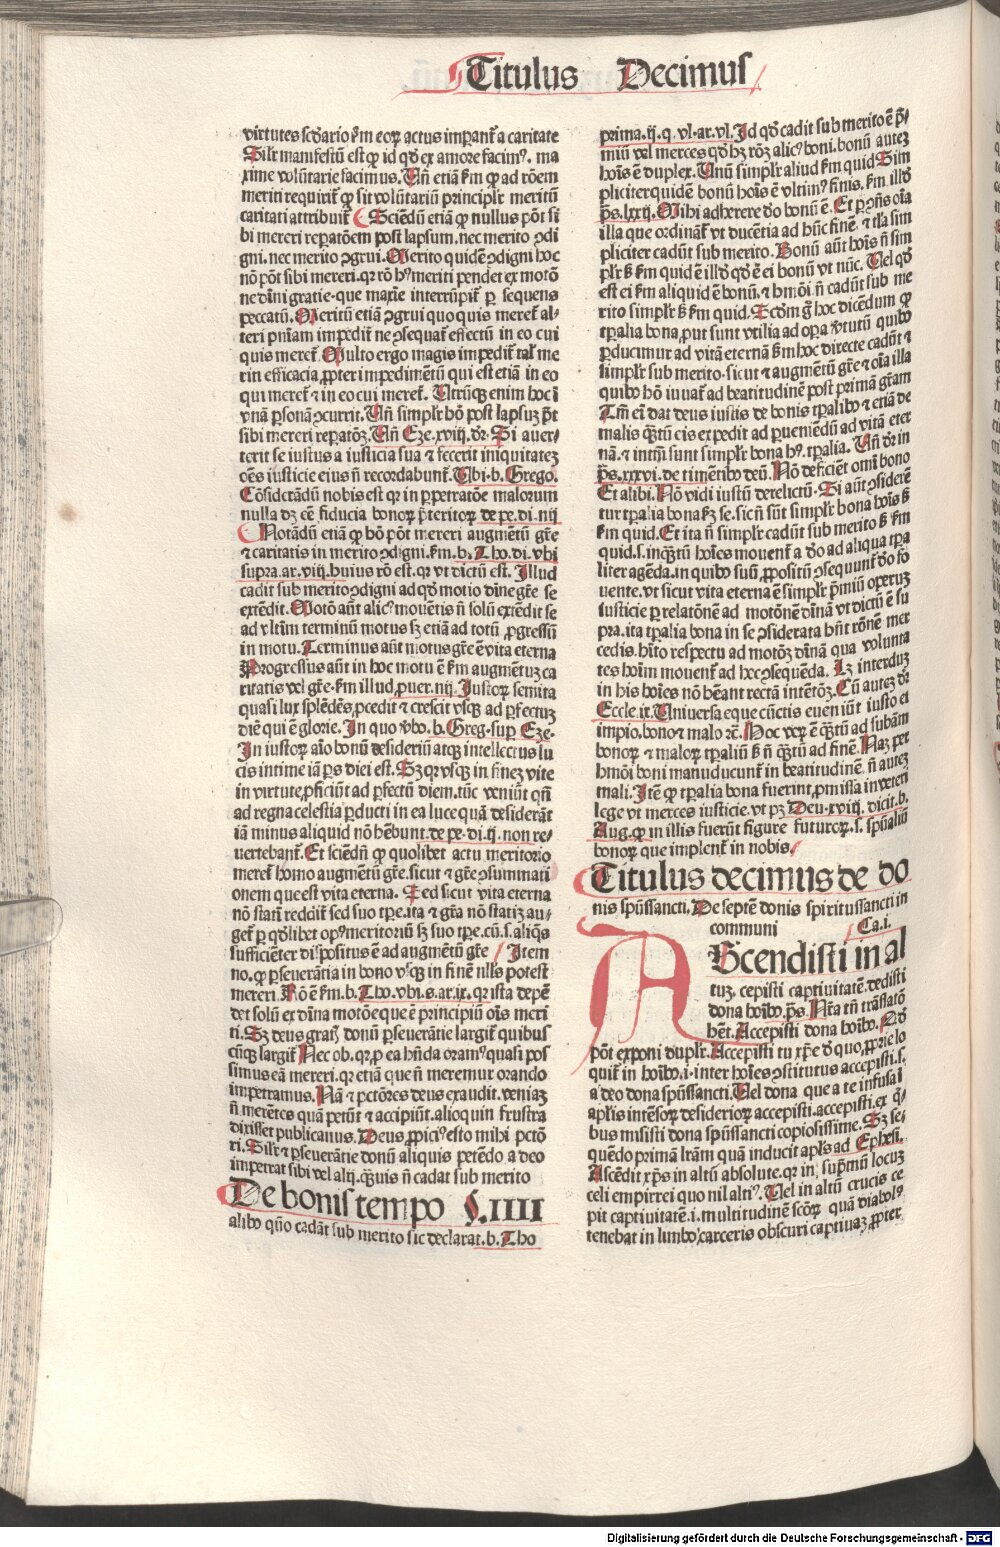 Titulus Decimus
virtutes scḋario ẜm eoꝝ actus imperant̃ a caritate
Silr̃ manifestũ est ꝙ id qḋ ex amore facimꝰ. ma
xime volũtarie facimus. Uñ etiã ẜm ꝙ ad rõem
meriti requirit̃ ꝙ sit volũtariũ principalr̃ meritũ
caritati attribuit̃ Sciẽdũ etiã ꝙ nullus põt si
bi mereri reparatõem post lapsum. nec merito ꝯdi
gni. nec merito ꝯgrui. Merito quidẽ ꝯdigni hoc
nõ põt sibi mereri. qꝛ rõ hꝰ meriti pendet ex motõ
ne diuini gratie. que maxĩe interrũpit̃ ꝑ sequens
peccatũ. Meritũ etiã ꝯgrui quo quis meret̃ al-
teri pniam impedit̃ ne ꝯsequat̃ effectũ in eo cui
quis meret̃. Multo ergo magis impedit̃ tal' me
riti efficacia ꝓpter impedimẽtũ qui est etiã in eo
qui meret̃ ⁊ in eo cui meret̃. Utrũqꝫ enim hoc ĩ
vnã ꝑsonã ꝯcurrit. Uñ simplr̃ hõ post lapsuꝫ põt
sibi mereri repatõꝫ. Uñ Eze. xviij. dr̃. Si auer-
terit se iustus a iusticia sua ⁊ fecerit iniquitateꝫ
oẽs iusticie eius ñ recordabunt̃. Ubi. b. Grego.
Cõsiderãdũ nobis est qꝛ in ꝑpetratõe malorum
nulla dꝫ eẽ fiducia bonoꝝ p̃teritoꝝ de pe. di. iiij
Notãdũ etiã ꝙ hõ põt mereri augmẽtũ gr̃e
⁊ caritatis in merito ꝯdigni. ẜm. b. Tho. di. vbi
supra. ar. viij. huius rõ est. qꝛ vt dictũ est. Illud
cadit sub merito ꝯdigni ad qḋ motio diue gr̃e se
extẽdit. Motõ aũt alicꝰ mouẽtis ñ solũ extẽdit se
ad vltim terminũ motus sꝫ etiã ad totũ ꝓgressũ
in motu. Terminus aũt motus gr̃e ẽ vita eterna
Progressus aũt in hoc motu ẽ ẜm augmẽtuꝫ ca
ritatis vel gr̃e. ẜm illud prouer. iiij. Iustoꝝ semita
quasi lux splẽdẽs ꝓcedit ⁊ crescit vsqꝫ ad ꝑfectuꝫ
diẽ qui ẽ glorie. In quo ṽbo. b. Greg. sup Eze.
In iustoꝝ aĩo bonũ desideriũ atqꝫ intellectus lu
cis intime iã ꝑs diei est. Sꝫ qꝛ vsqꝫ in fineꝫ vite
in virtute ꝓficiũt ad ꝑfectũ diem. tũc veniũt qñ
ad regna celestia ꝑducti in ea luce quã desiderãt
iã minus aliquid nõ hẽbunt. de pe. di. ij. non re-
uertebant̃. Et sciẽdũ ꝙ quolibet actu meritorio
meret̃ homo augmẽtũ gr̃e. sicut ⁊ gr̃e ꝯsummati
onem que est vita eterna. Sed sicut vita eterna
nõ statĩ reddit̃ sed suo tpe. ita ⁊ gr̃a nõ statiꝫ au-
get̃ ꝑ qḋlibet opꝰ meritoriũ sꝫ suo tpe. cũ. s. aliq̃s
sufficiẽter dispositus ẽ ad augmẽtũ gr̃e Item
no. ꝙ ꝑseuerãtia in bono vsqꝫ in finẽ nllꝰs potest
mereri. Rõ ẽ ẜm. b. Tho. vbi. s. ar. ix. qꝛ ista depẽ
det solũ ex diuina motõe que ẽ principiũ oĩs meri
ti. Sꝫ deus gratis donũ ꝑseuerãtie largit̃ quibus
cũqꝫ largit̃. Nec ob. qꝛ ꝓ ea hñda oramꝰ quasi pos
simus eã mereri. qꝛ etiã que ñ meremur orando
impetramus. Nã ⁊ pctõres deus exaudit. veniaꝫ
ñ merẽtes quã petũt ⁊ accipiũt. alioquin frustra
dixisset publicanus. Deus ꝓpiciꝰ esto mihi pctõ
ri. Silr̃ ⁊ ꝑseuerãtie donũ aliquis petẽdo a deo
impetrat sibi vel alij. q̃uis ñ cadat sub merito
De bonis tempo §. IIII
alibꝰ qũo cadãt sub merito sic declarat. b. Tho
prima. ij. q. vl. ar. vl. Id qḋ cadit sub merito ẽ p̃-
miũ vel merces qḋ hꝫ rõꝫ alicꝰ boni. bonũ auteꝫ
hoĩs ẽ duplex. Unũ simplr̃ aliud ẜm quid. Sim
pliciter quidẽ bonũ hoĩs ẽ vltimꝰ finis. ẜm illḋ
ps. lxxij. Mihi adherere deo bonũ ẽ. Et ꝑ ꝯñs oĩa
illa que ordinãt̃ vt ducẽtia ad hũc finẽ. ⁊ tĩa sim
pliciter cadũt sub merito. Bonũ aũt hoĩs ñ sim
plr̃ ẜ ẜm quid ẽ illḋ qḋ ẽ ei bonũ vt nũc. Uel qḋ
est ei ẜm aliquid ẽ bonũ. ⁊ bmõi ñ cadũt sub me
rito simplr̃ ẜ ẜm quid. Scḋm g̃ hoc dicẽdum ꝙ
tpalia bona, put sunt vtilia ad opa ṽtutũ quibꝰ
ꝑducimur ad vitã eternã ẜm hoc directe cadũt ⁊
simplr̃ sub merito. sicut ⁊ augmẽtũ gr̃e ⁊ oĩa illa
quibꝰ hõ iuuat̃ ad beatitudinẽ post primã gr̃am
Tm̃ eĩ dat deus iustis de bonis tpalibꝰ ⁊ etiã de
malis q̃ntũ eis expedit ad ꝑueniẽdũ ad vitã eter
nã. ⁊ intm̃ sunt simplr̃ bona hꝰ. tpalia. Uñ dr̃ in
ps. xxxvi. de timẽtibꝰ deũ. Nõ deficiẽt omĩ bono
Et alibi. Nõ vidi iustũ derelictũ. Si aũt ꝯsiderẽ
tur tpalia bona ẜꝫ se. sic ñ sũt simplr̃ bona hoĩs ẜ
ẜm quid. Et ita ñ simplr̃ cadũt sub merito ẜ ẜm
quid. s. inq̃ntũ hoĩes mouent̃ a deo ad aliqua tpa
liter agẽda. in quibꝰ suũ ꝓpositũ ꝯsequunt̃ deo fo
uente. vt sicut vita eterna ẽ simplr̃ p̃miũ operuꝫ
iusticie ꝑ relatõnẽ ad motõnẽ diuinã vt dictũ ẽ su
pra. ita tpalia bona in se ꝯsiderata hñt rõnẽ mer
cedis. hito respectu ad motõꝫ diuinã qua volunta
tes hoĩm mouent̃ ad hec ꝯsequẽda. Lꝫ interduꝫ
in his hoĩes nõ hẽant rectã intẽtõꝫ. Cũ auteꝫ dr̃
Eccle. ix. Uniuersa eque cũctis eueniũt iusto et
impio. bono ⁊ malo ⁊c̃. Hoc veꝝ ẽ q̃ntũ ad subam
bonoꝝ ⁊ maloꝝ tpaliũ ẜ ñ q̃ntũ ad finẽ. Naꝫ per
hmõi boni manuducunt̃ in beatitudinẽ. ñ auteꝫ
mali. Itẽ ꝙ tpalia bona fuerint ꝓmissa in veteri
lege vt merces iusticie. vt pꝫ Deu. xviij. dicit. b.
Aug. ꝙ in illis fuerũt figure futuroꝝ. s. spũaliũ
bonoꝝ que implent̃ in nobis.
Titulus decimus de do
nis spũssancti. De septẽ donis spiritussancti in
communi Ca. i.
AScendisti in al
tuꝫ. cepisti captiuitatẽ. dedisti
dona hoĩbꝰ. ps. Nr̃a tñ trãslatõ
hẽt. Accepisti dona hoĩbꝰ. Qḋ
põt exponi duplr̃. Accepisti tu xp̃e deo quo, ꝓprie lo
quit̃ in hoĩbꝰ. i. inter hoĩes ꝯstitutus accepisti. s.
a deo dona spũssancti. Uel dona que a te infusa ĩ
aplis intẽsoꝝ desiderioꝝ accepisti. accepisti. ex q̃-
bus misisti dona spũssancti copiosissime. Sꝫ se-
quẽdo primã lr̃am quã inducit apl̃s ad Ephesi.
Ascẽdit xp̃s in altũ absolute. qꝛ in supremũ locuꝫ
celi empirrei quo nil altiꝰ. Uel in altũ crucis ce
pit captiuitatẽ. i. multitudinẽ scõꝝ quã diabolꝰ
tenebat in limbo, carceris obscuri captiuaꝫ ꝓpter
Digitalisierung gefördert durch die Deutsche Forschungsgemeinschaft - DFG